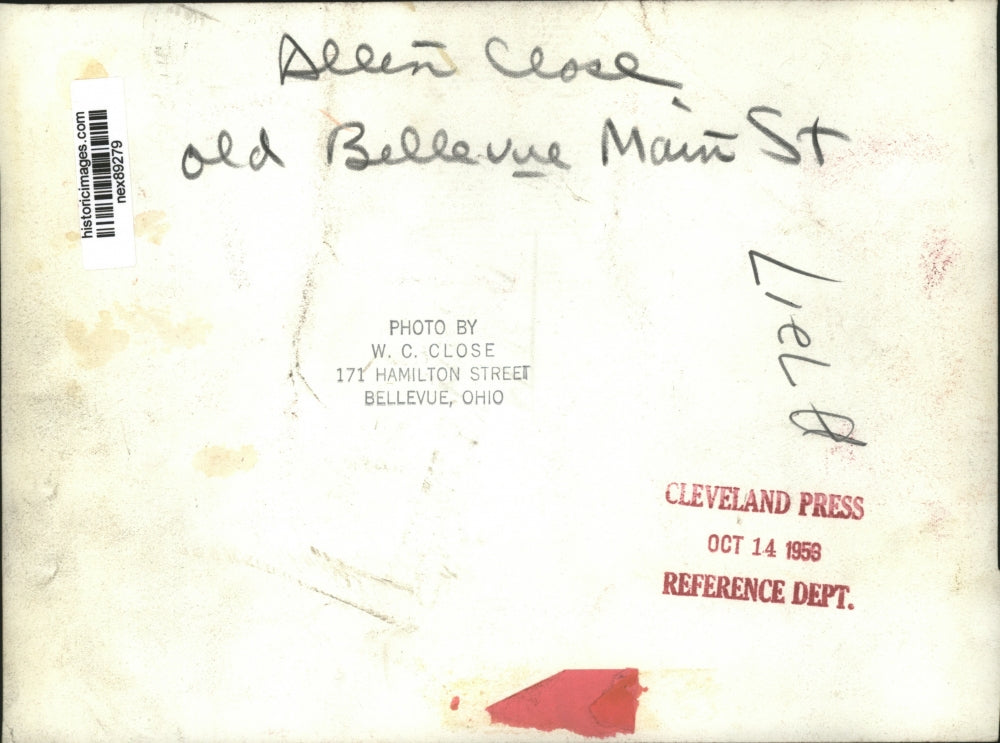 Allen Close
old Bellevue Main St
historicimages.com
nex89279
PHOTO BY
W. C. CLOSE
171 HAMILTON STREET
BELLEVUE, OHIO
CLEVELAND PRESS
OCT 14 1953
REFERENCE DEPT.